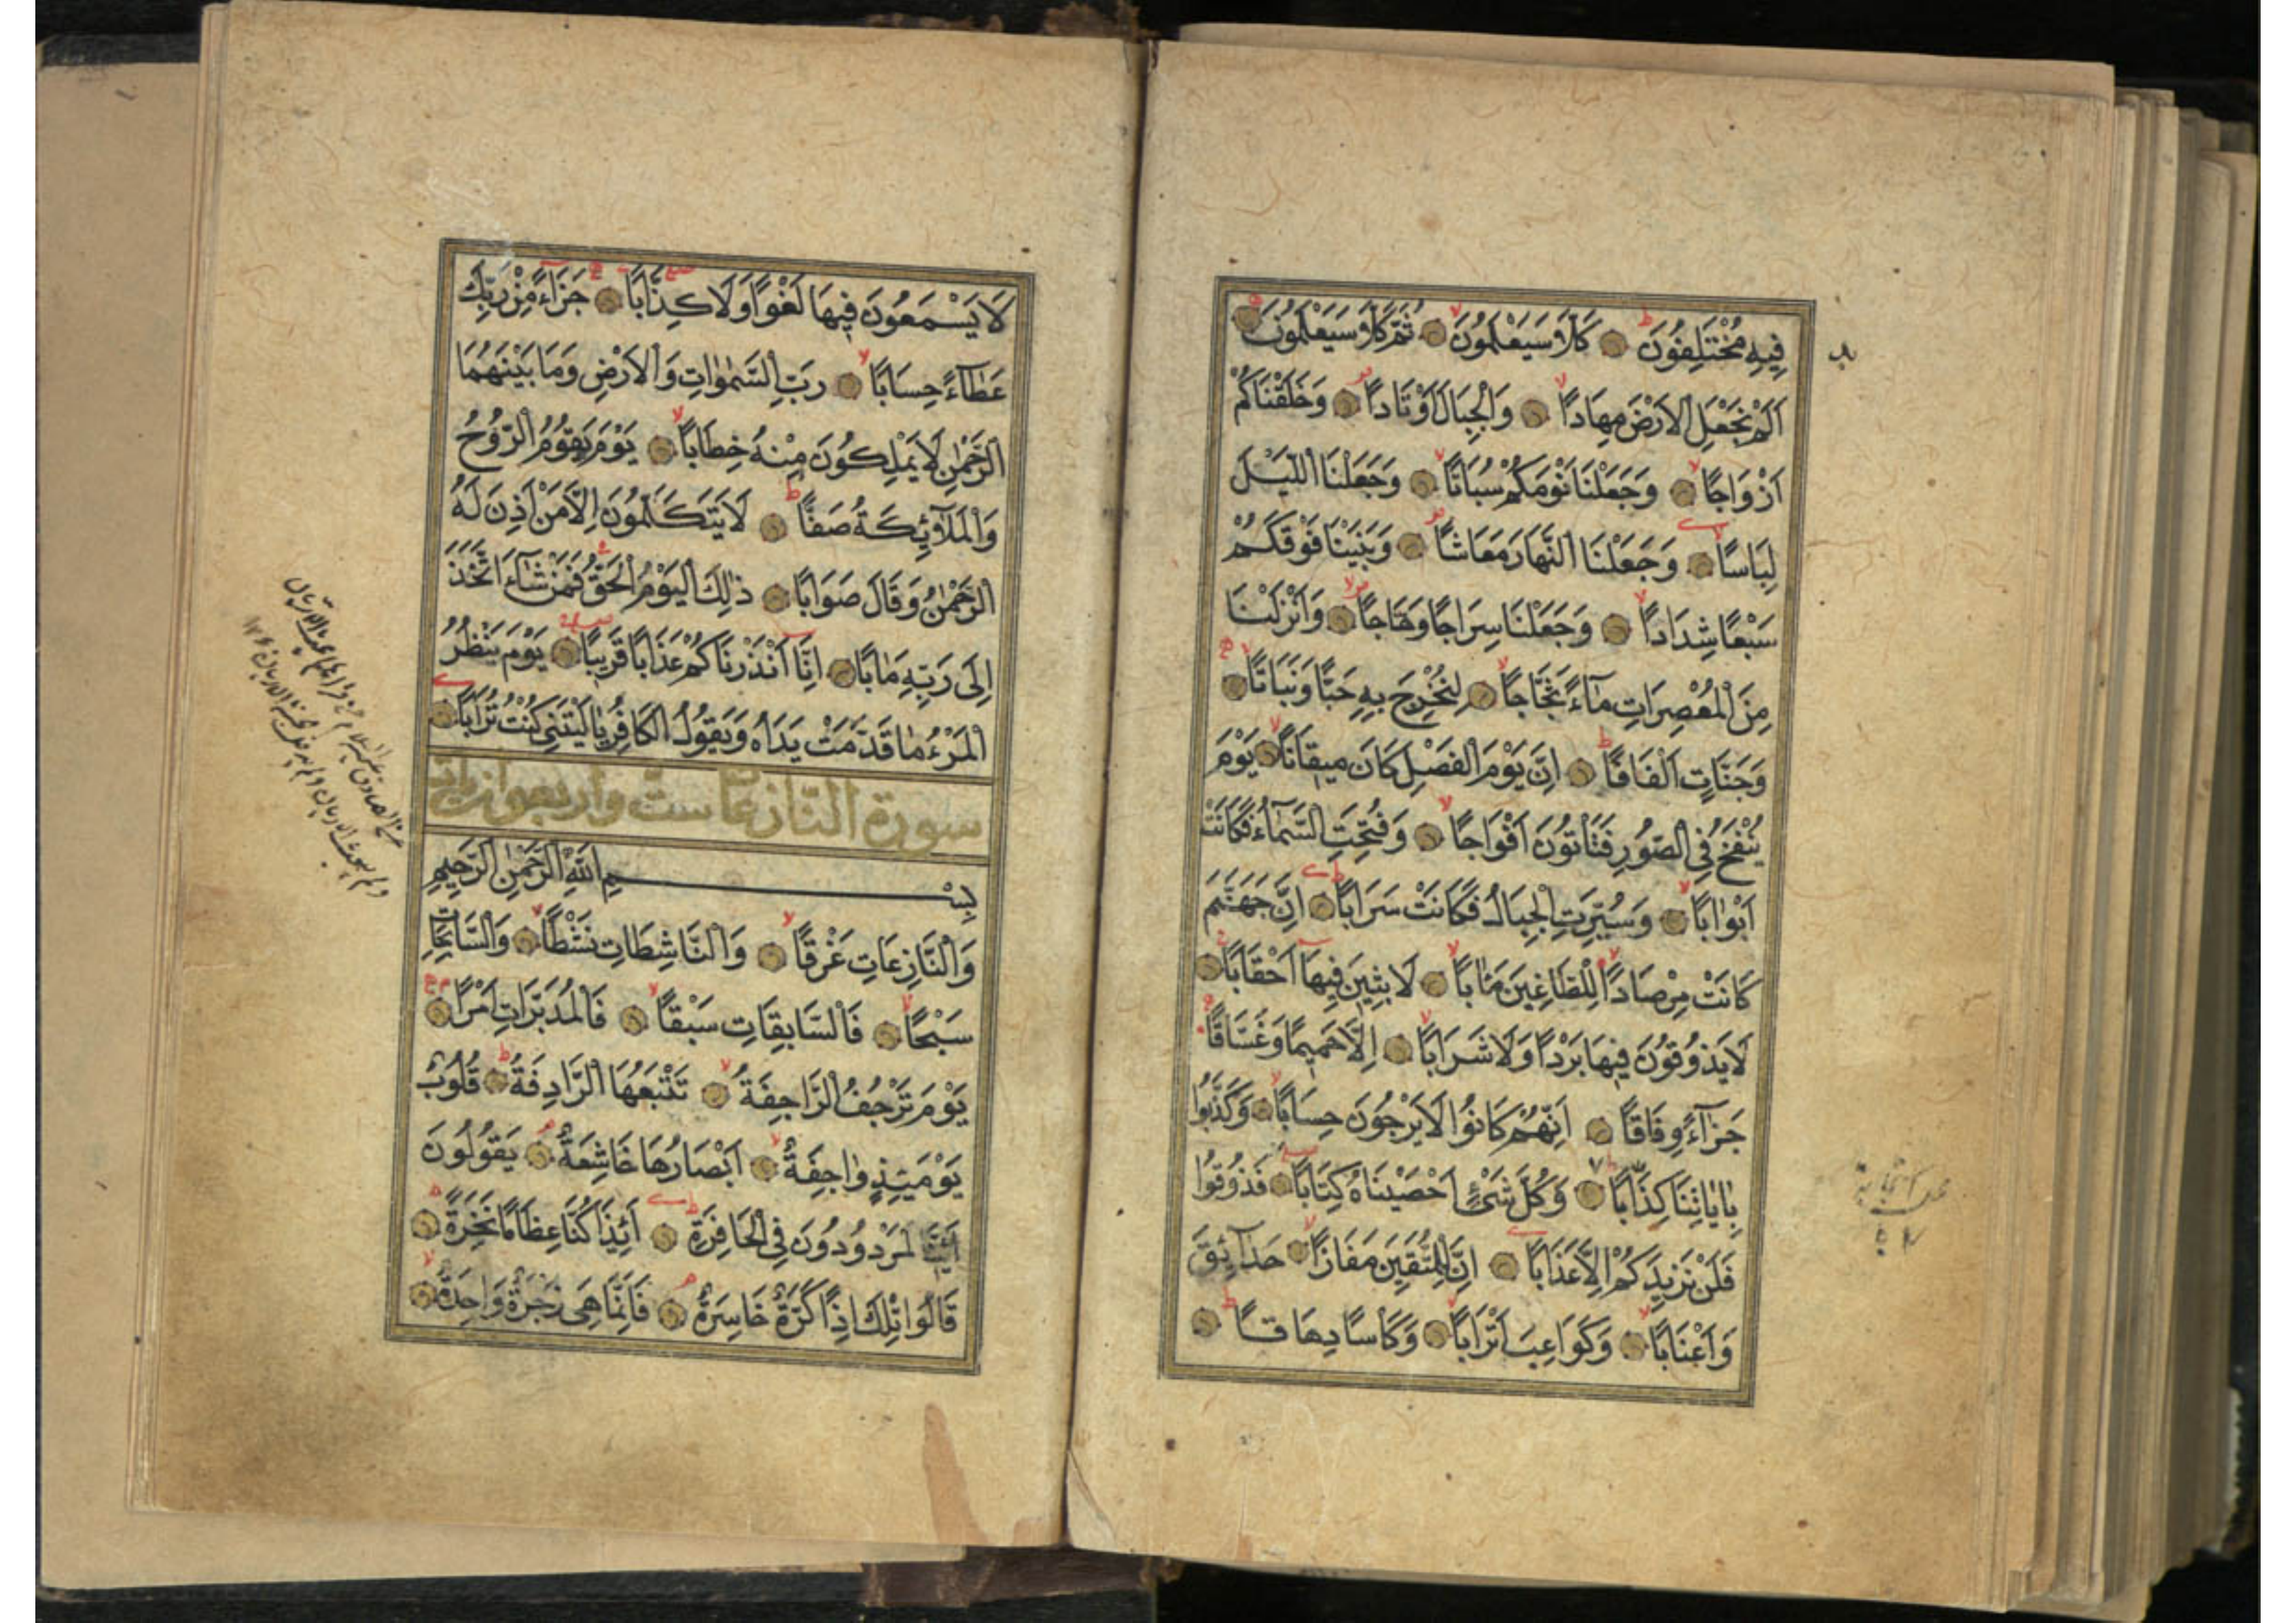 فِيهِ مُخْتَلِفُونَ كَلَّا سَيَعْلَمُونَ ثُمَّ كَلَّا سَيَعْلَمُونَ
اَلَمْ نَجْعَلِ الْاَرْضَ مِهَادًا وَالْجِبَالَ اَوْتَادًا وَخَلَقْنَاكُمْ
اَزْوَاجًا وَجَعَلْنَا نَوْمَكُمْ سُبَاتًا وَجَعَلْنَا اللَّيْلَ
لِبَاسًا وَجَعَلْنَا النَّهَارَ مَعَاشًا وَبَنَيْنَا فَوْقَكُمْ
سَبْعًا شِدَادًا وَجَعَلْنَا سِرَاجًا وَهَّاجًا وَاَنْزَلْنَا
مِنَ الْمُعْصِرَاتِ مَاءً ثَجَّاجًا لِنُخْرِجَ بِهِ حَبًّا وَنَبَاتًا
وَجَنَّاتٍ اَلْفَافًا اِنَّ يَوْمَ الْفَصْلِ كَانَ مِيقَاتًا يَوْمَ
يُنْفَخُ فِي الصُّورِ فَتَأْتُونَ اَفْوَاجًا وَفُتِحَتِ السَّمَاءُ فَكَانَتْ
اَبْوَابًا وَسُيِّرَتِ الْجِبَالُ فَكَانَتْ سَرَابًا اِنَّ جَهَنَّمَ
كَانَتْ مِرْصَادًا لِلطَّاغِينَ مَاٰبًا لَابِثِينَ فِيهَا اَحْقَابًا
لَا يَذُوقُونَ فِيهَا بَرْدًا وَلَا شَرَابًا اِلَّا حَمِيمًا وَغَسَّاقًا
جَزَاءً وِفَاقًا اِنَّهُمْ كَانُوا لَا يَرْجُونَ حِسَابًا وَكَذَّبُوا
بِاٰيَاتِنَا كِذَّابًا وَكُلَّ شَيْءٍ اَحْصَيْنَاهُ كِتَابًا فَذُوقُوا
فَلَنْ نَزِيدَكُمْ اِلَّا عَذَابًا اِنَّ لِلْمُتَّقِينَ مَفَازًا حَدَائِقَ
وَاَعْنَابًا وَكَوَاعِبَ اَتْرَابًا وَكَأْسًا دِهَاقًا
لَا يَسْمَعُونَ فِيهَا لَغْوًا وَلَا كِذَّابًا جَزَاءً مِنْ رَبِّكَ
عَطَاءً حِسَابًا رَبِّ السَّمٰوَاتِ وَالْاَرْضِ وَمَا بَيْنَهُمَا
الرَّحْمٰنِ لَا يَمْلِكُونَ مِنْهُ خِطَابًا يَوْمَ يَقُومُ الرُّوحُ
وَالْمَلٰئِكَةُ صَفًّا لَا يَتَكَلَّمُونَ اِلَّا مَنْ اَذِنَ لَهُ
الرَّحْمٰنُ وَقَالَ صَوَابًا ذٰلِكَ الْيَوْمُ الْحَقُّ فَمَنْ شَاءَ اتَّخَذَ
اِلَى رَبِّهِ مَاٰبًا اِنَّا اَنْذَرْنَاكُمْ عَذَابًا قَرِيبًا يَوْمَ يَنْظُرُ
الْمَرْءُ مَا قَدَّمَتْ يَدَاهُ وَيَقُولُ الْكَافِرُ يَا لَيْتَنِي كُنْتُ تُرَابًا
سورة النازعات ست واربعون اية
بِسْمِ اللهِ الرَّحْمٰنِ الرَّحِيمِ
وَالنَّازِعَاتِ غَرْقًا وَالنَّاشِطَاتِ نَشْطًا وَالسَّابِحَاتِ
سَبْحًا فَالسَّابِقَاتِ سَبْقًا فَالْمُدَبِّرَاتِ اَمْرًا
يَوْمَ تَرْجُفُ الرَّاجِفَةُ تَتْبَعُهَا الرَّادِفَةُ قُلُوبٌ
يَوْمَئِذٍ وَاجِفَةٌ اَبْصَارُهَا خَاشِعَةٌ يَقُولُونَ
ءَاِنَّا لَمَرْدُودُونَ فِي الْحَافِرَةِ اَئِذَا كُنَّا عِظَامًا نَخِرَةً
قَالُوا تِلْكَ اِذًا كَرَّةٌ خَاسِرَةٌ فَاِنَّمَا هِيَ زَجْرَةٌ وَاحِدَةٌ